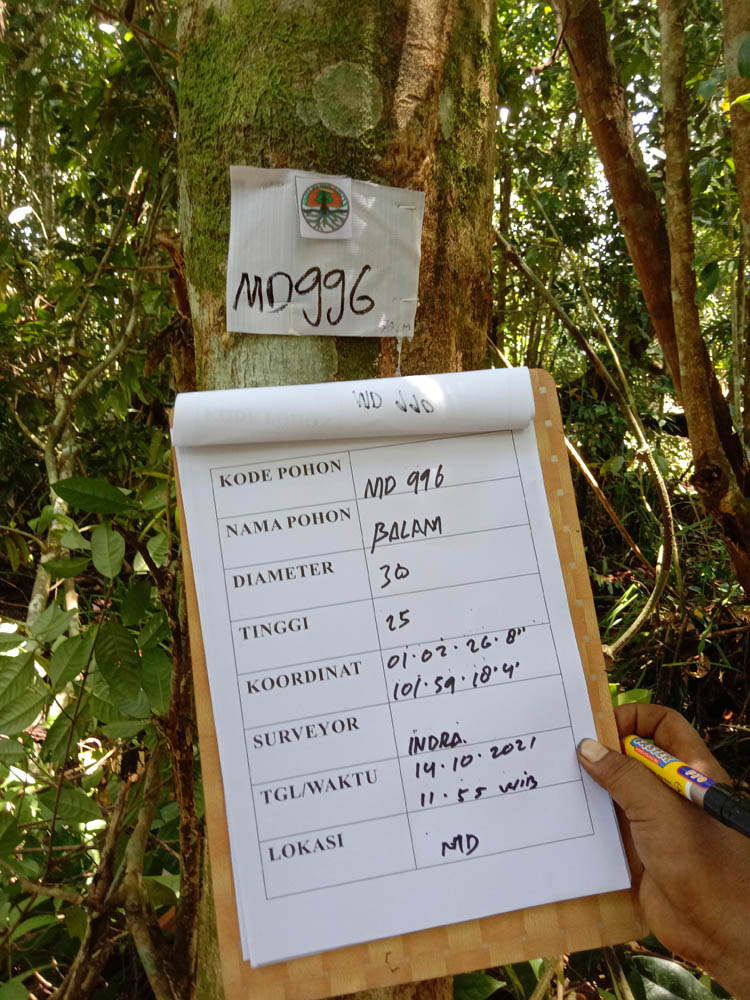 MD996
KODE POHON MD 996
NAMA POHON BALAM
DIAMETER 30
TINGGI 25
KOORDINAT 01.02.26.8"
101.59.18.4'
SURVEYOR INDRA.
TGL/WAKTU 14.10.2021
11.55 WIB
LOKASI MD